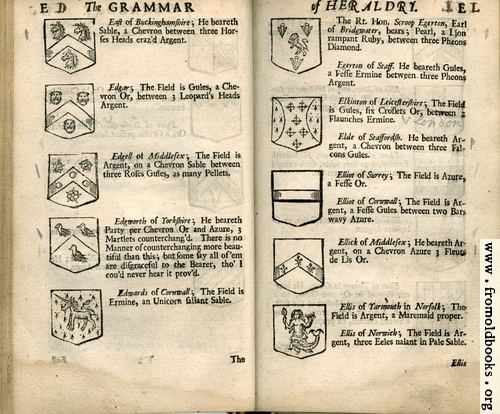 E D The GRAMMAR
East of Buckinghamshire; He beareth
Sable, a Chevron between three Hor-
ses Heads eraz'd Argent.
Edgar; The Field is Gules, a Che-
vron Or, between 3 Leopard's Heads
Argent.
Edgell of Middlesex; The Field is
Argent, on a Chevron Sable between
three Roses Gules, as many Pellets.
Edgworth of Yorkshire; He beareth
Party per Chevron Or and Azure, 3
Martlets counterchang'd. There is no
Manner of counterchanging more beau-
tiful than this; but some say all of 'em
are disgraceful to the Bearer, tho' I
cou'd never hear it prov'd.
Edwards of Cornwall; The Field is
Ermine, an Unicorn saliant Sable.
The
of HERALDRY. E L
The Rt. Hon. Scroop Egerton, Earl
of Bridgewater, bears; Pearl, a Lion
rampant Ruby, between three Pheons
Diamond.
Egerton of Staff. He beareth Gules,
a Fesse Ermine between three Pheons
Argent.
Elkinton of Leicestershire; The Field
is Gules, six Croslets Or, between 2
Flaunches Ermine.
Elde of Staffordsh. He beareth Ar-
gent, a Chevron between three Fal-
cons Gules.
Elliot of Surrey; The Field is Azure,
a Fesse Or.
Elliot of Cornwall; The Field is Ar-
gent, a Fesse Gules between two Bars
wavy Azure.
Ellick of Middlesex; He beareth Ar-
gent, on a Chevron Azure 3 Fleurs
de Lis Or.
Ellis of Yarmouth in Norfolk; The
Field is Argent, a Maremaid proper.
Ellis of Norwich; The Field is Ar-
gent, three Eeles naiant in Pale Sable.
Ellis
www.fromoldbooks.org